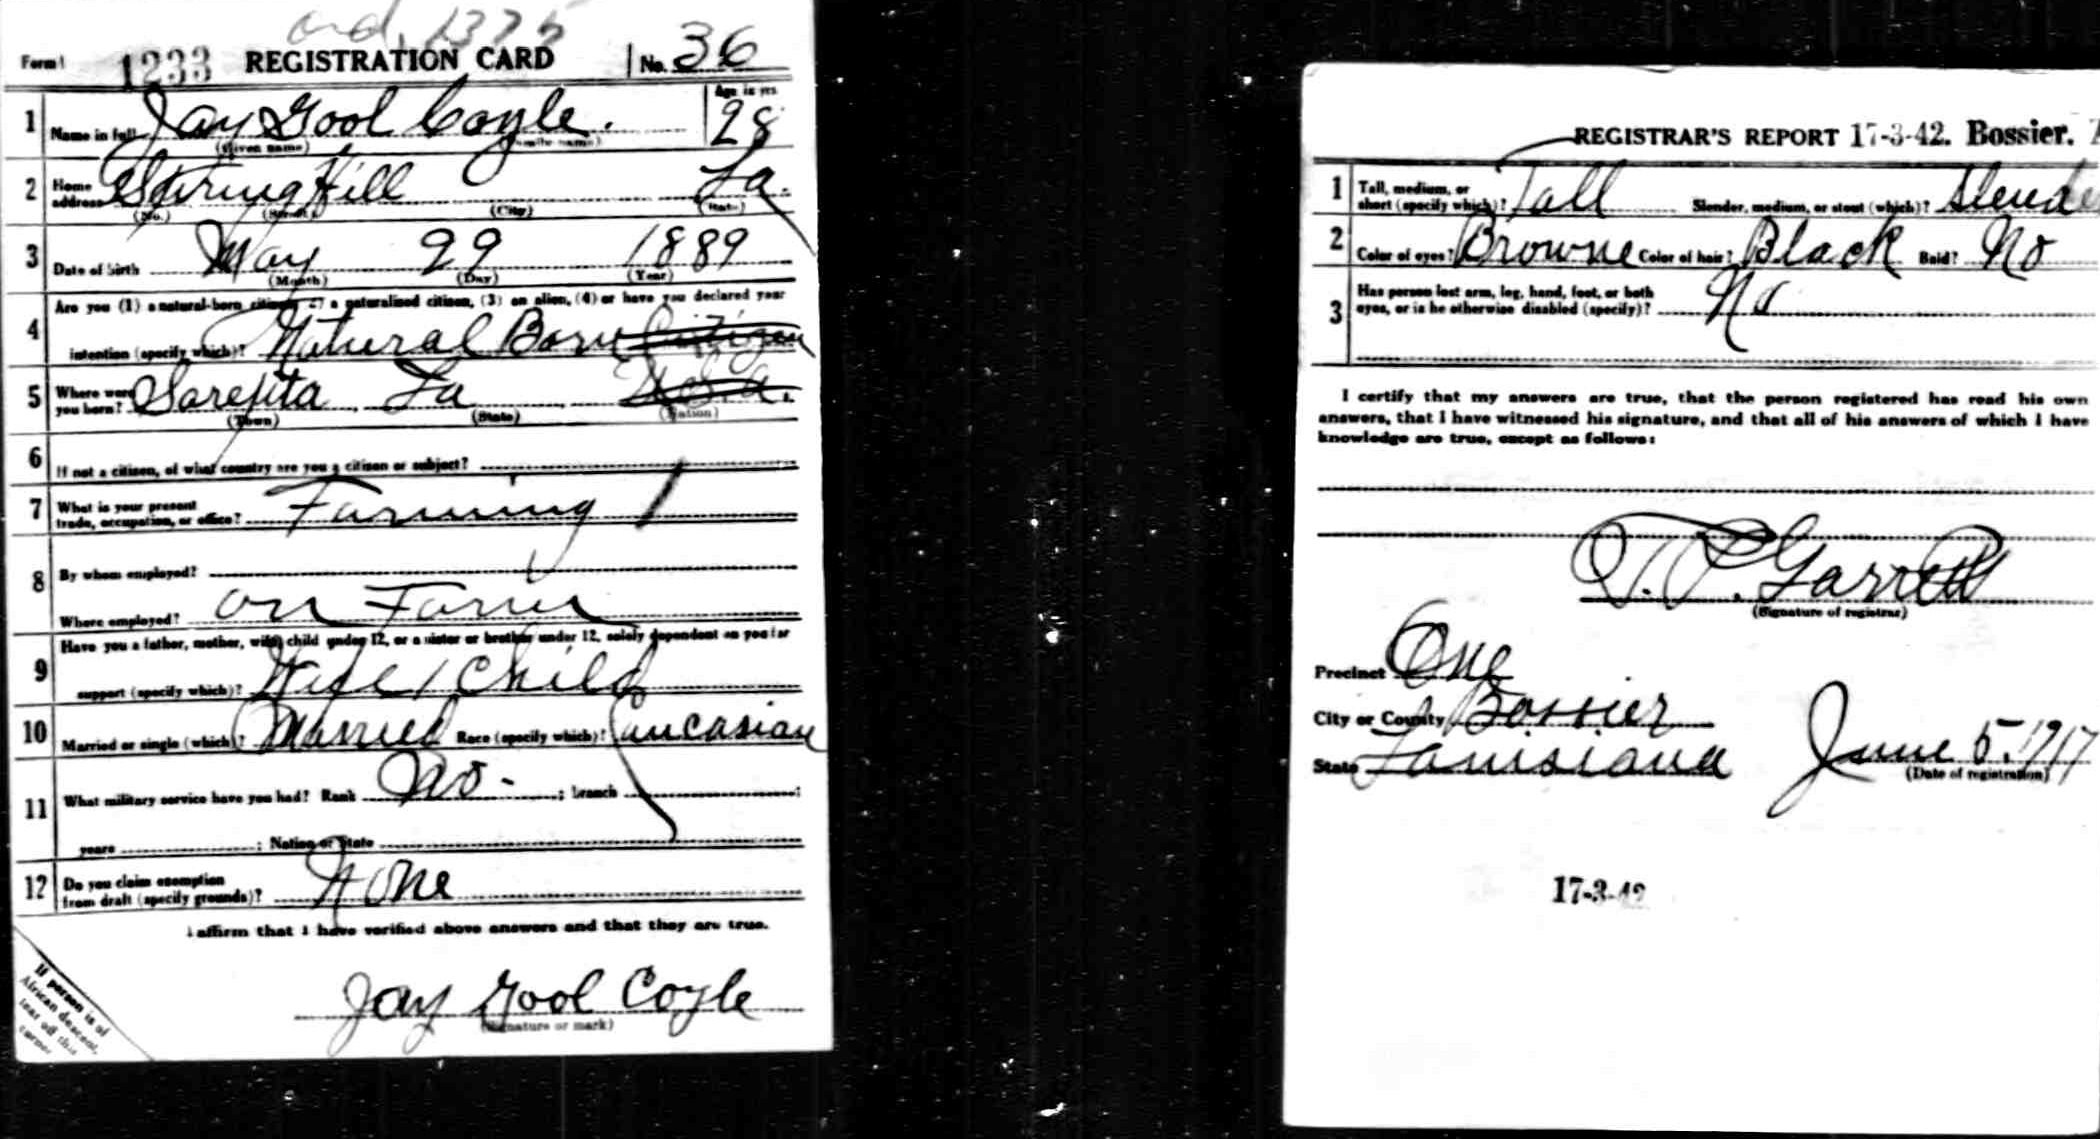 ord. 1375
Form 1 1233 REGISTRATION CARD No. 36
1 Name in full Jay Gool Coyle. Age in yrs 28
(Given name) (Family name)
2 Home address Spring Hill La.
(No.) (Street) (City) (State)
3 Date of birth May 29 1889
(Month) (Day) (Year)
4 Are you (1) a natural-born citizen, (2) a naturalized citizen, (3) an alien, (4) or have you declared your
intention (specify which)? Natural Born Citizen
5 Where were you born? Sarepta La U.S.a.
(Town) (State) (Nation)
6 If not a citizen, of what country are you a citizen or subject?
7 What is your present trade, occupation, or office? Farming 1
8 By whom employed?
Where employed? on Farm
9 Have you a father, mother, wife, child under 12, or a sister or brother under 12, solely dependent on you for
support (specify which)? Wife / Child
10 Married or single (which)? Married Race (specify which)? Caucasian
11 What military service have you had? Rank No - ; branch ;
years ; Nation or State
12 Do you claim exemption from draft (specify grounds)? None
I affirm that I have verified above answers and that they are true.
Jay Gool Coyle
(Signature or mark)
If person is of
African descent,
tear off this
corner
REGISTRAR'S REPORT 17-3-42. Bossier.
1 Tall, medium, or short (specify which)? Tall Slender, medium, or stout (which)? Slende
2 Color of eyes? Browne Color of hair? Black Bald? No
3 Has person lost arm, leg, hand, foot, or both eyes, or is he otherwise disabled (specify)? No
I certify that my answers are true, that the person registered has read his own
answers, that I have witnessed his signature, and that all of his answers of which I have
knowledge are true, except as follows:
T. P. Garrett
(Signature of registrar)
Precinct One
City or County Bossier
State Louisiana June 5. 1917
(Date of registration)
17-3-42